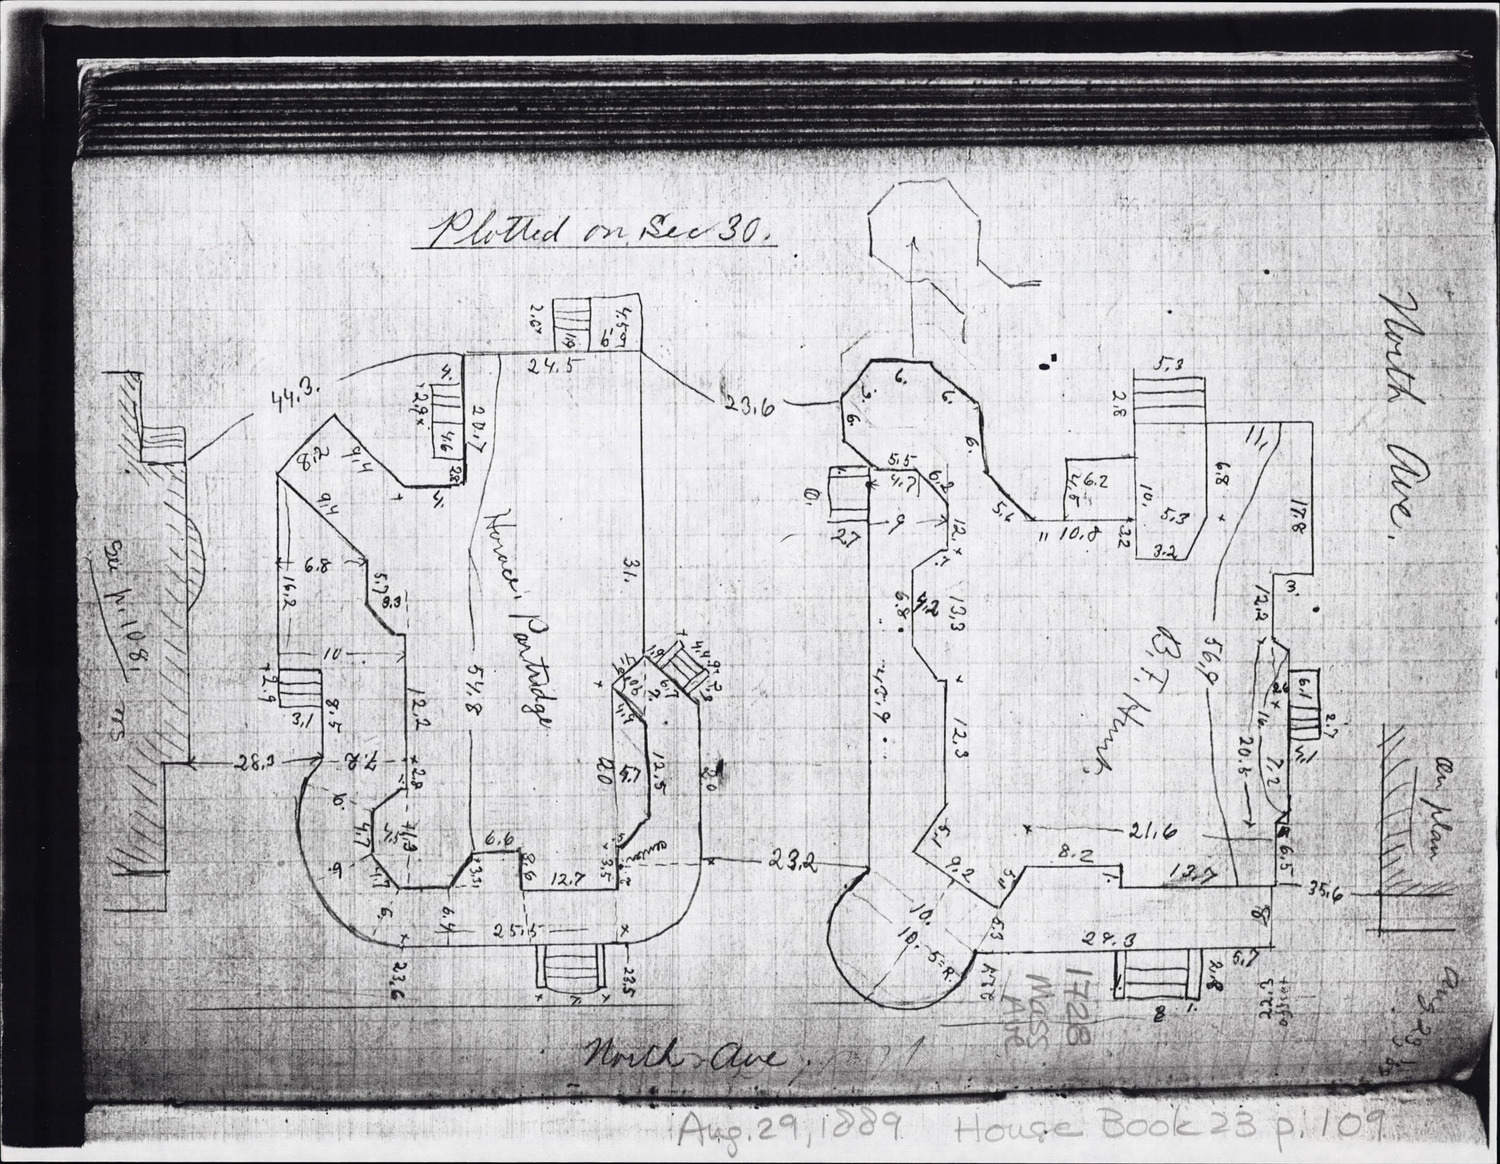 Plotted on Sec 30.
North Ave.
2.6
4.5
9.
24.5
44.3.
4.
2.9
20.7
4.6
2.8
4.
8.2
9.4
9.4
23.6
6.
6.
6.
6.
5.5
4.7
6.2
9
2.7
5.6
11 10.8
3.2
6.2
4.5
5.3
2.8
11.
6.8
10.
5.3
3.2
17.8
3.
See p. 108.
6.8
16.2
5.7
3.3
10
2.9
3.1
8.5
12.2
54.8
Horace Partridge
31.
12.5
4.7
20
20
28.3
7.2
2.8
6.
4.7
4.7
6.
6.
6.4
6.6
3.3
8.6
12.7
3.5
25.5
23.6
23.5
23.2
12.
6.8
4.2
13.3
43.9
12.3
5.1
9.2
B. F. Hunt.
56.9
12.2
6.1
2.7
20.5
7.2
6.5
21.6
8.2
1.
13.7
35.6
8
10.
10.
5=R.
6.3
29.3
5.7
2.8
8
1.
22.5
on plan
Aug 29
1728
Mass
Ave
North Ave
Aug. 29, 1889 House Book 23 p. 109